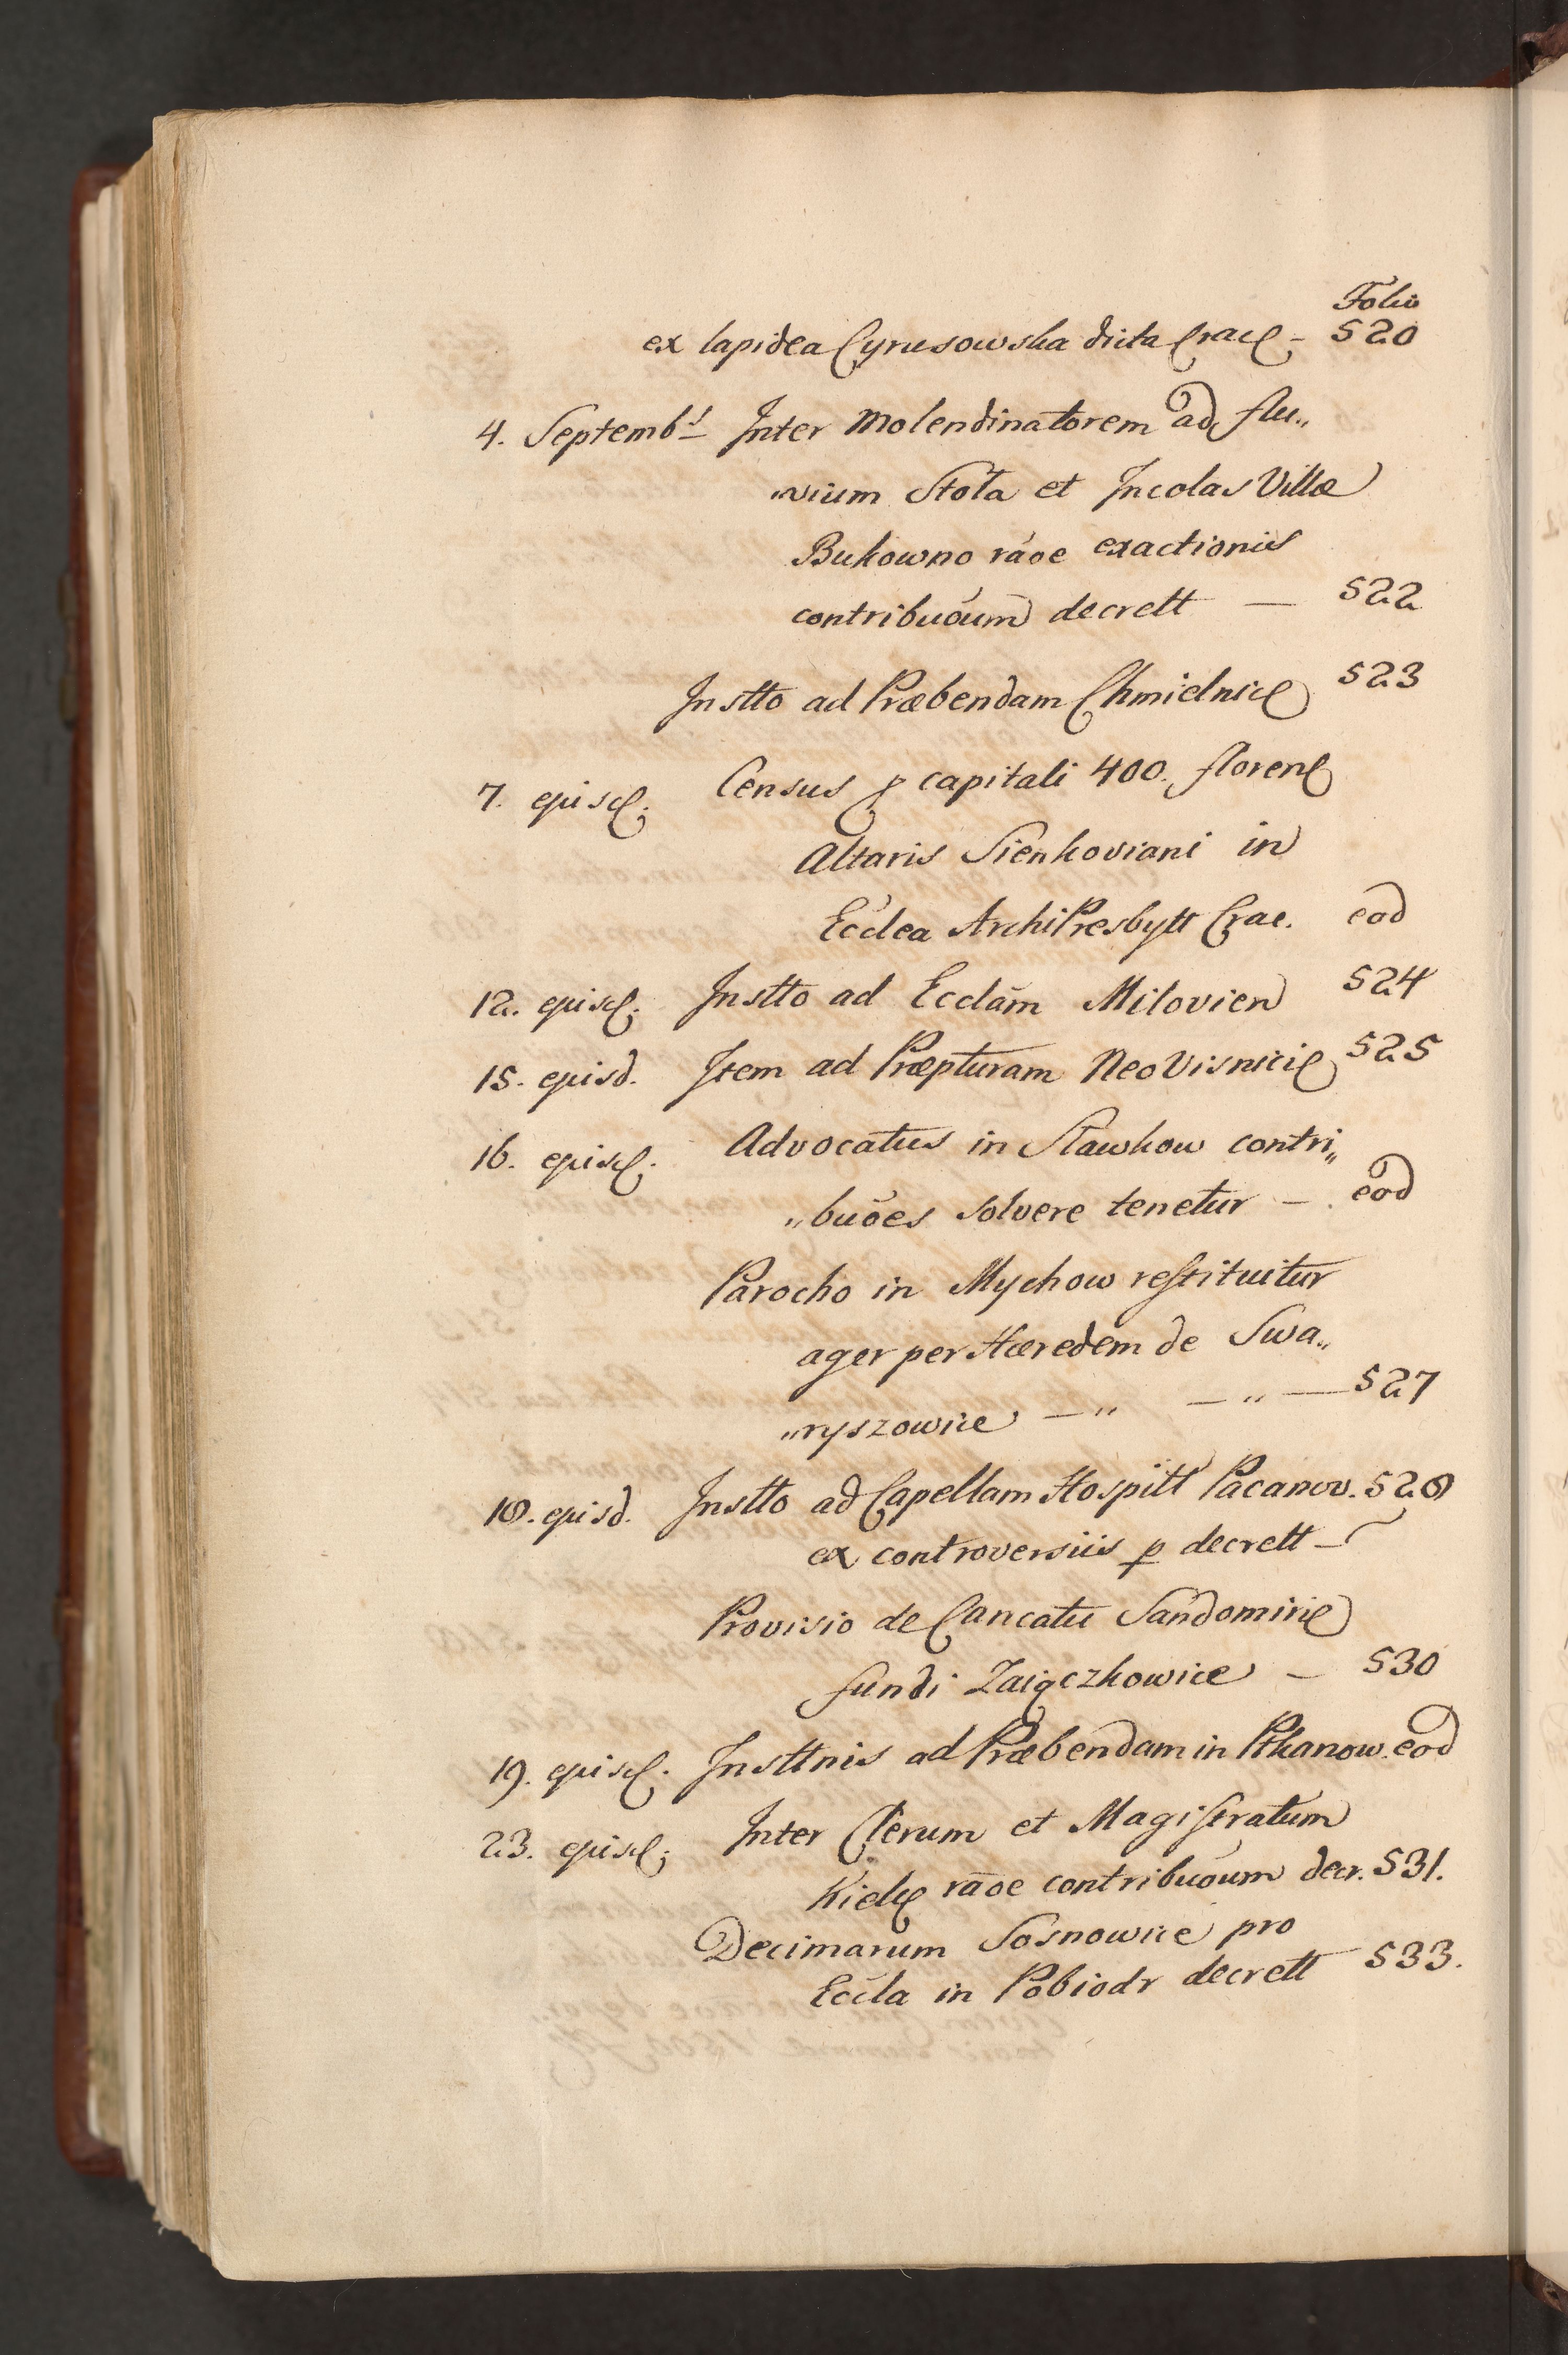 Folio
ex lapidea Cyrusowska dicta Crac - 520
4. Septembr Inter Molendinatorem ad flu„
„vium Stoła et Incolas Villæ
Bukowno rãoe exactionis
contribuõum decrett — 522
Instto ad Præbendam Chmielnic 523
7. ejusd. Census p capitali 400. floren
Altaris Sienkoviani in
Ecclea ArchiPresbytt Crac. eod
12. ejusd. Instto ad Ecclãm Milovien 524
15. ejusd. Item ad Præpturam NeoVisnicie 525
16. ejusd. Advocatus in Sławkow contri„
„buões solvere tenetur – eod
Parocho in Mychow restituitur
ager per Hæredem de Swa„
„ryszowice —„ —„— 527
18. ejusd. Instto ad Capellam Hospitt Pacanov. 528
ex controversiis p decrett —
Provisio de Cancatu Sandomirie
fundi Zaiączkowice – 530
19. ejusd. Insttnis ad Præbendam in Pkanow. eod
23. ejusd. Inter Clerum et Magistratum
Kielc rãoe contribuõum decr. 531.
Decimarum Sosnowice pro
Eccla in Pobiedr decrett 533.